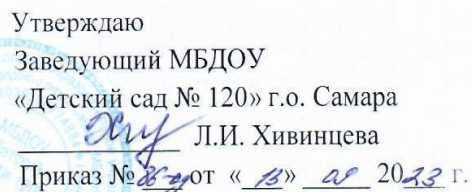 Утверждаю
Заведующий МБДОУ
«Детский сад № 120» г.о. Самара
Л.И. Хивинцева
Приказ № от «13» 01 2023 г.